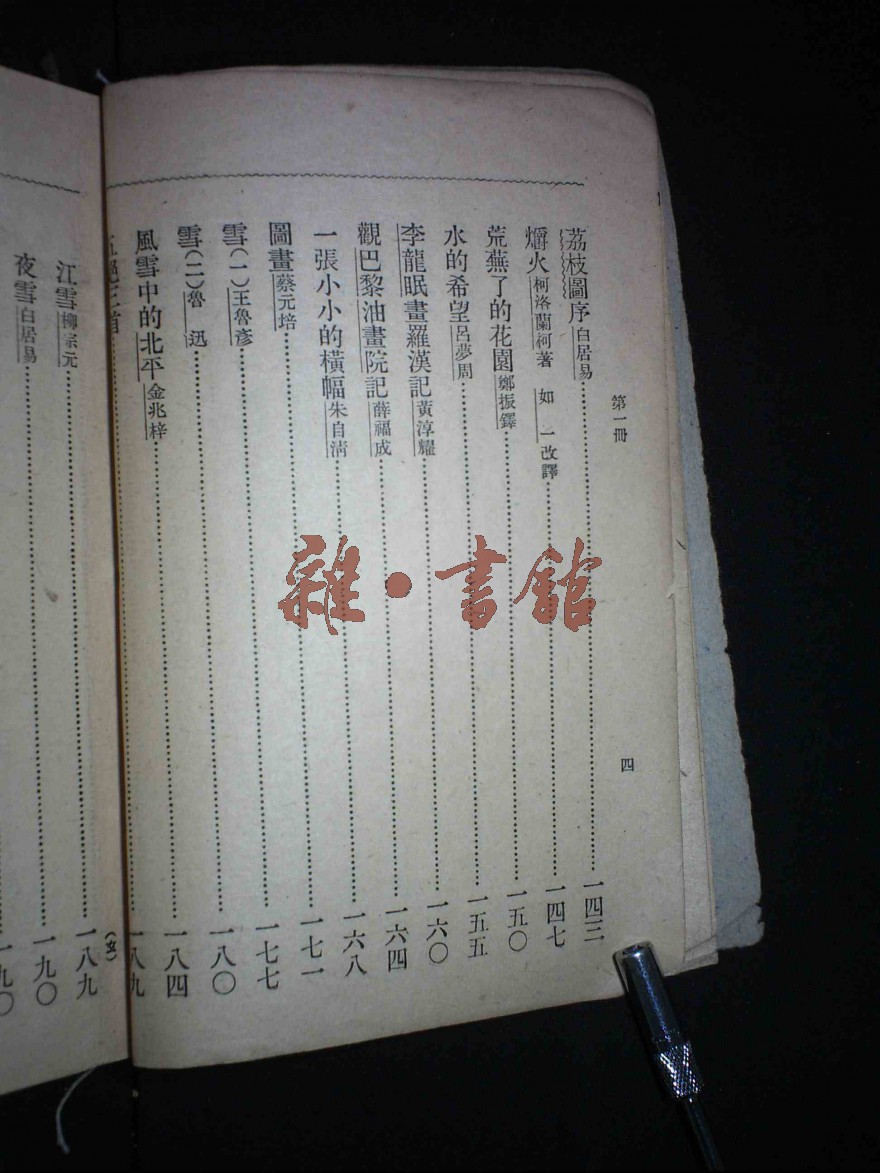 第一冊 四
荔枝圖序 白居易……一四三
爝火 柯洛蘭柯著 如一改譯……一四七
荒蕪了的花園 鄭振鐸……一五〇
水的希望 呂夢周……一五五
李龍眠畫羅漢記 黃淳耀……一六〇
觀巴黎油畫院記 薛福成……一六四
一張小小的橫幅 朱自清……一六八
圖畫 蔡元培……一七一
雪(一) 王魯彥……一七七
雪(二) 魯迅……一八〇
風雪中的北平 金兆梓……一八四
三首……一八九
江雪 柳宗元……一八九
夜雪 白居易……一九〇
一九〇
雜·書館